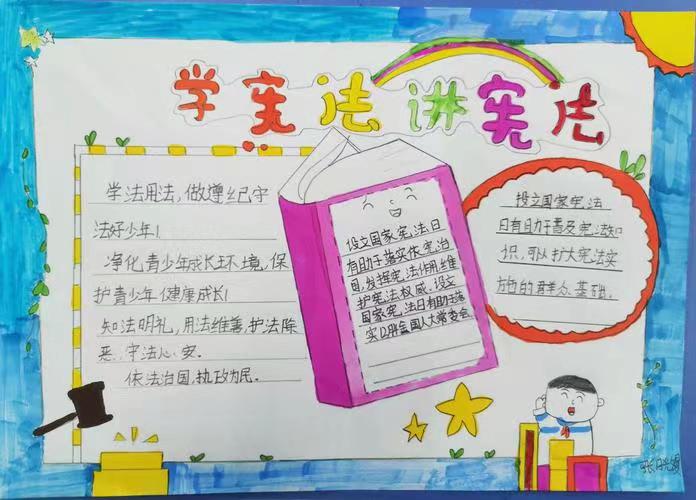 学宪法 讲宪法
学法用法，做遵纪守
法好少年！
净化青少年成长环境，保
护青少年健康成长！
知法明礼，用法维善，护法除
恶，守法心安．
依法治国，执政为民．
设立国家宪法日
有助于落实依宪治
国，发挥宪法作用，维
护宪法权威．设立
国家宪法日有助于落
实
全国人大常委会
投立国家宪法
日有助于普及宪法知
识，可以扩大宪法实
施的群众基础．